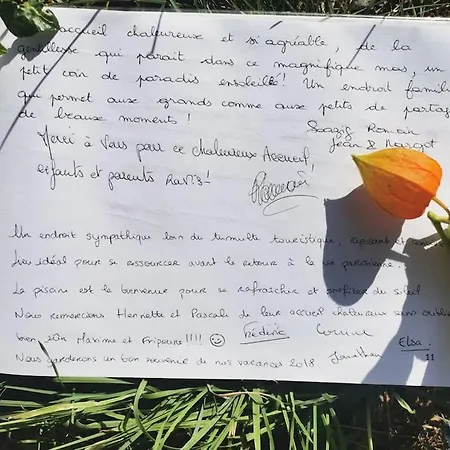 accueil chaleureux et si agréable, de la
gentillesse qui parait dans ce magnifique mas, un
petit coin de paradis ensoleillé! Un endroit famili
qui permet aux grands comme aux petits de partag
de beaux moments !
Soazig Romain
Jean & Margot
Merci à Vous pour ce chaleureux Accueil,
enfants et parents Ravis!
Un endroit sympathique loin du tumulte touristique, reposant et
Lieu idéal pour se ressourcer avant le retour à la vie parisienne.
La piscine est la bienvenue pour se rafraichir et profiter du soleil
Nous remercions Henriette et Pascal de leur accueil chaleureux sans oublier
bien sûr Maxima et Fripoune !!!! Frédéric
Elsa
11
Nous garderons un bon souvenir de nos vacances 2018 Jonathan